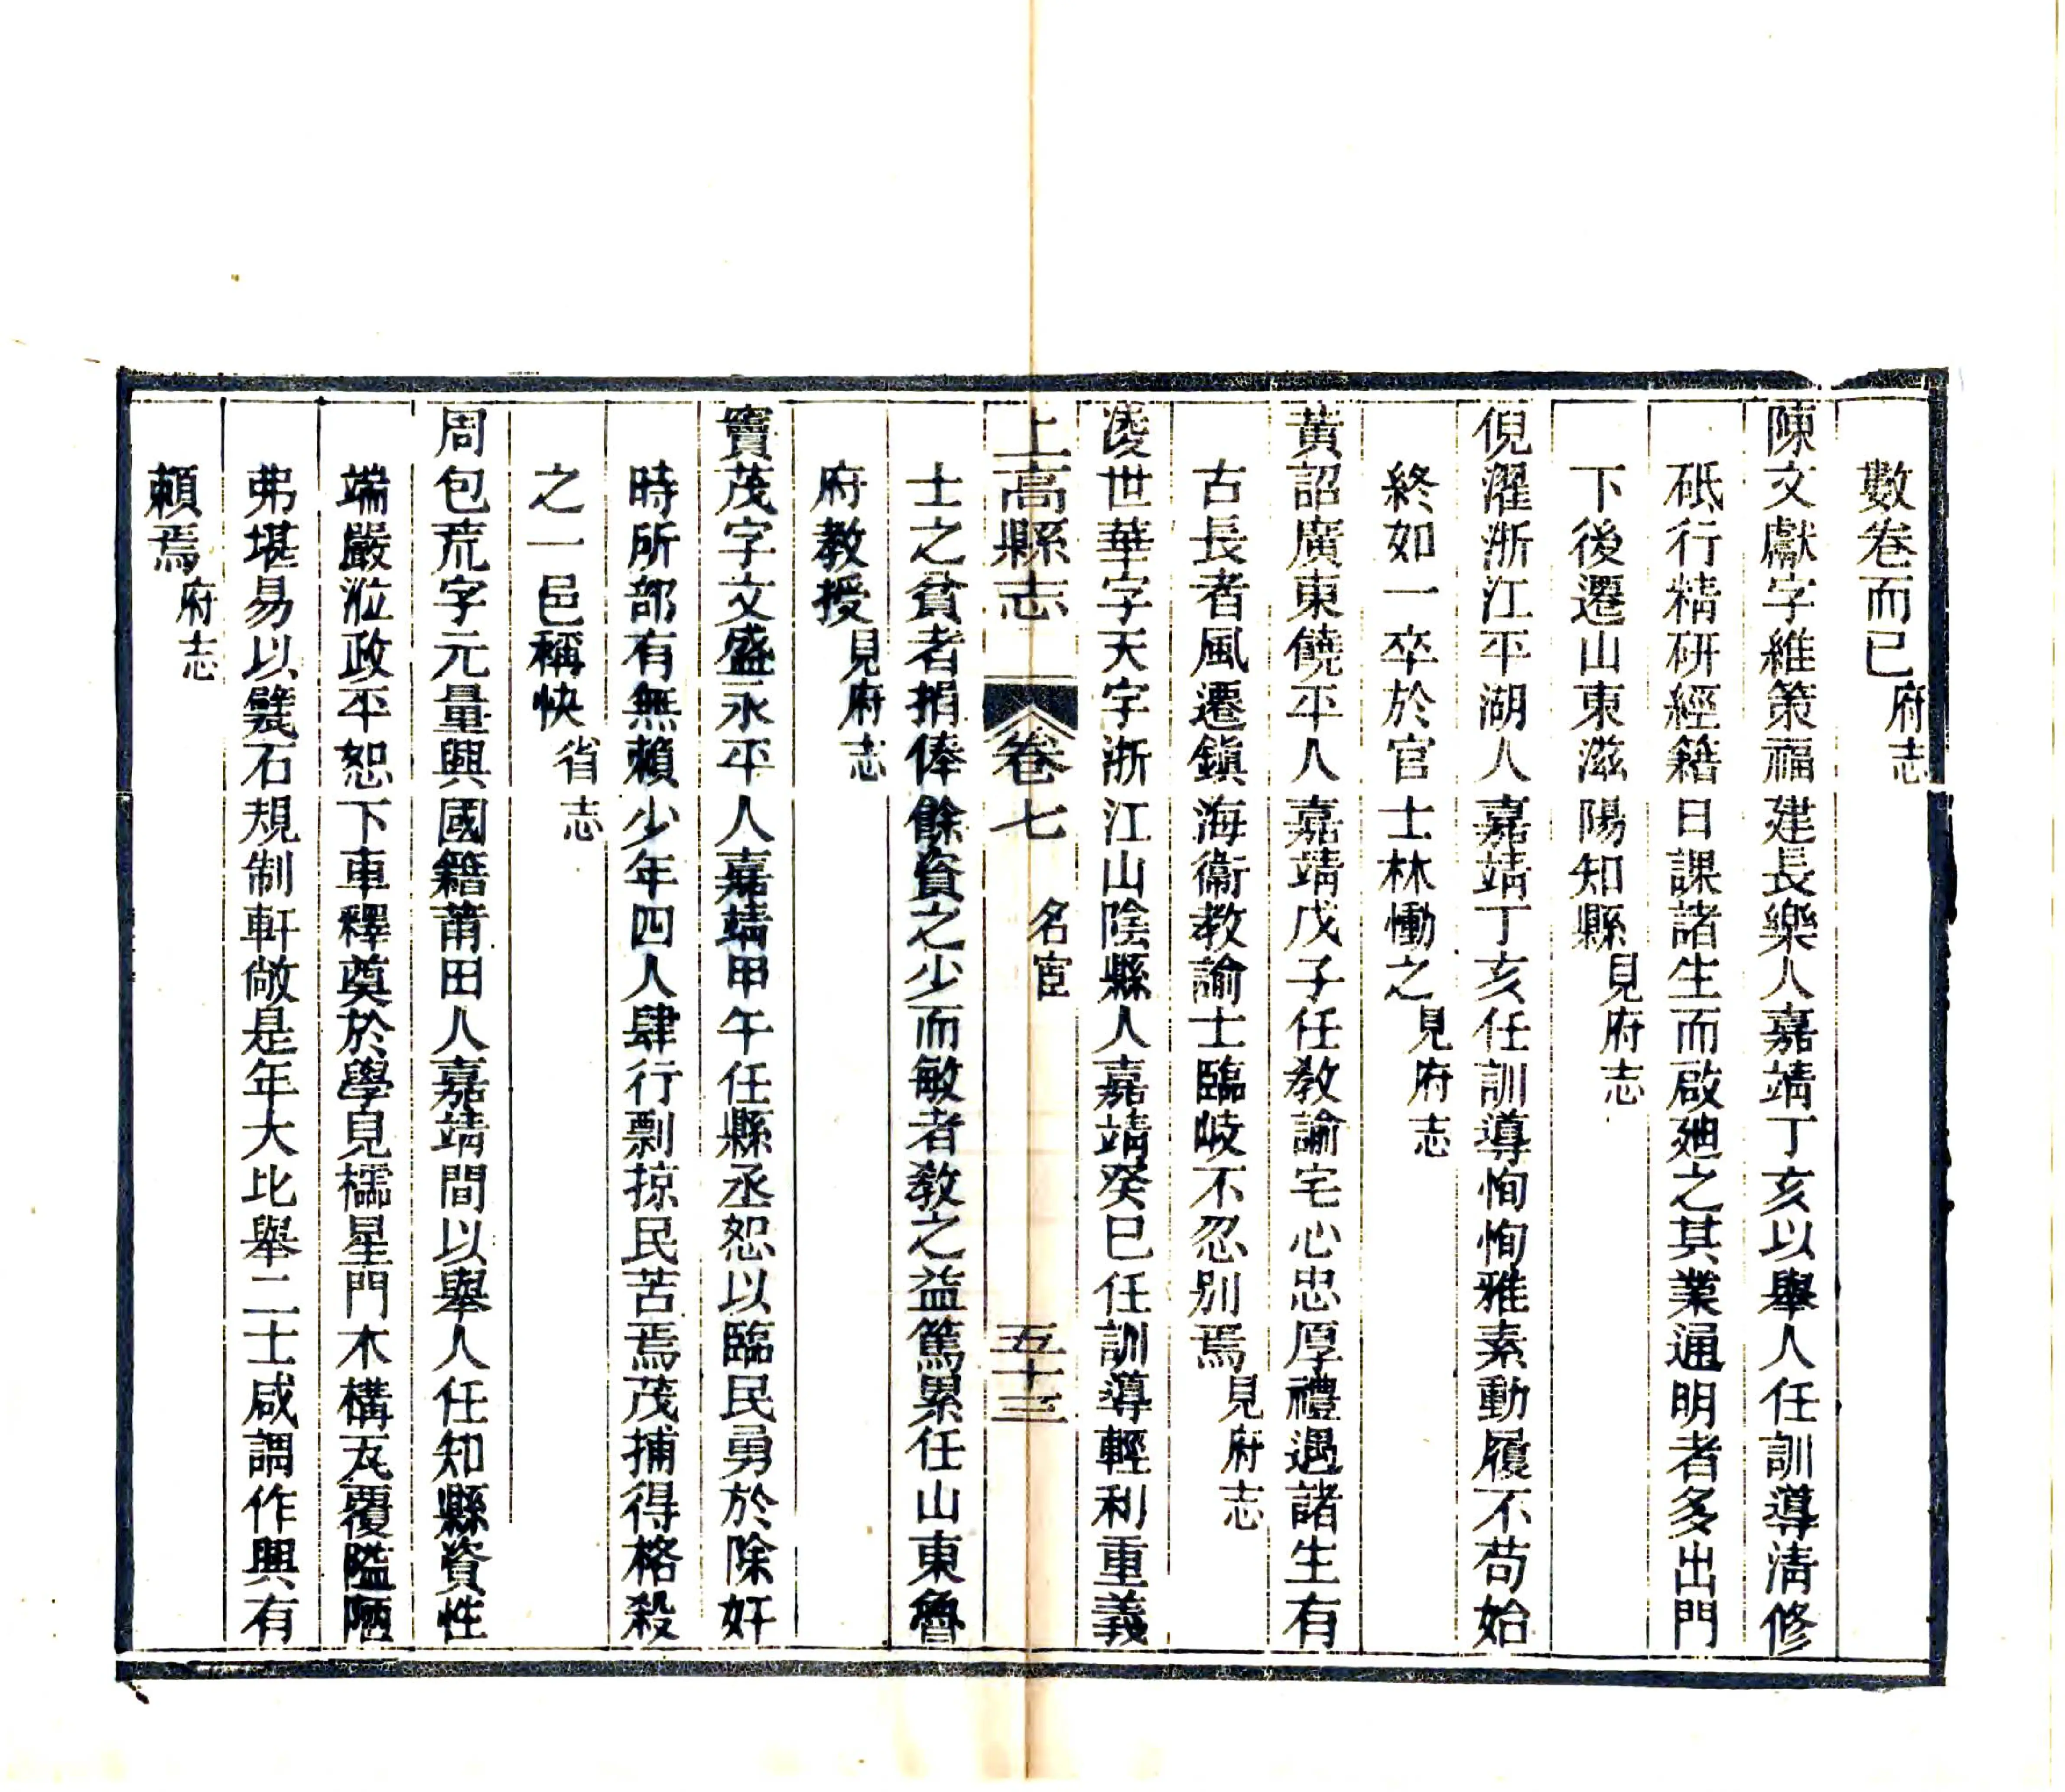 數卷而已府志
陳文獻字維策福建長樂人嘉靖丁亥以舉人任訓導淸修
砥行精研經籍日課諸生而啟廸之其業通明者多出門
下後遷山東滋陽知縣見府志
倪濯浙江平湖人嘉靖丁亥任訓導恂恂雅素動履不苟始
終如一卒於官士林慟之見府志
黃詔廣東饒平人嘉靖戊子任敎諭宅心忠厚禮遇諸生有
古長者風遷鎭海衞敎諭士臨岐不忍別焉見府志
淩世華字天字浙江山陰縣人嘉靖癸巳任訓導輕利重義
上高縣志 卷七 名宦 五十三
士之貧者捐俸餘資之少而敏者敎之益篤累任山東魯
府敎授見府志
竇茂字文盛永平人嘉靖甲午任縣丞恕以臨民勇於除奸
時所部有無賴少年四人肆行剽掠民苦焉茂捕得格殺
之一邑稱快省志
周包荒字元量興國籍莆田人嘉靖間以舉人任知縣資性
端嚴涖政平恕下車釋奠於學見櫺星門木構瓦覆隘陋
弗堪易以甃石規制軒敞是年大比舉二士咸謂作興有
賴焉府志